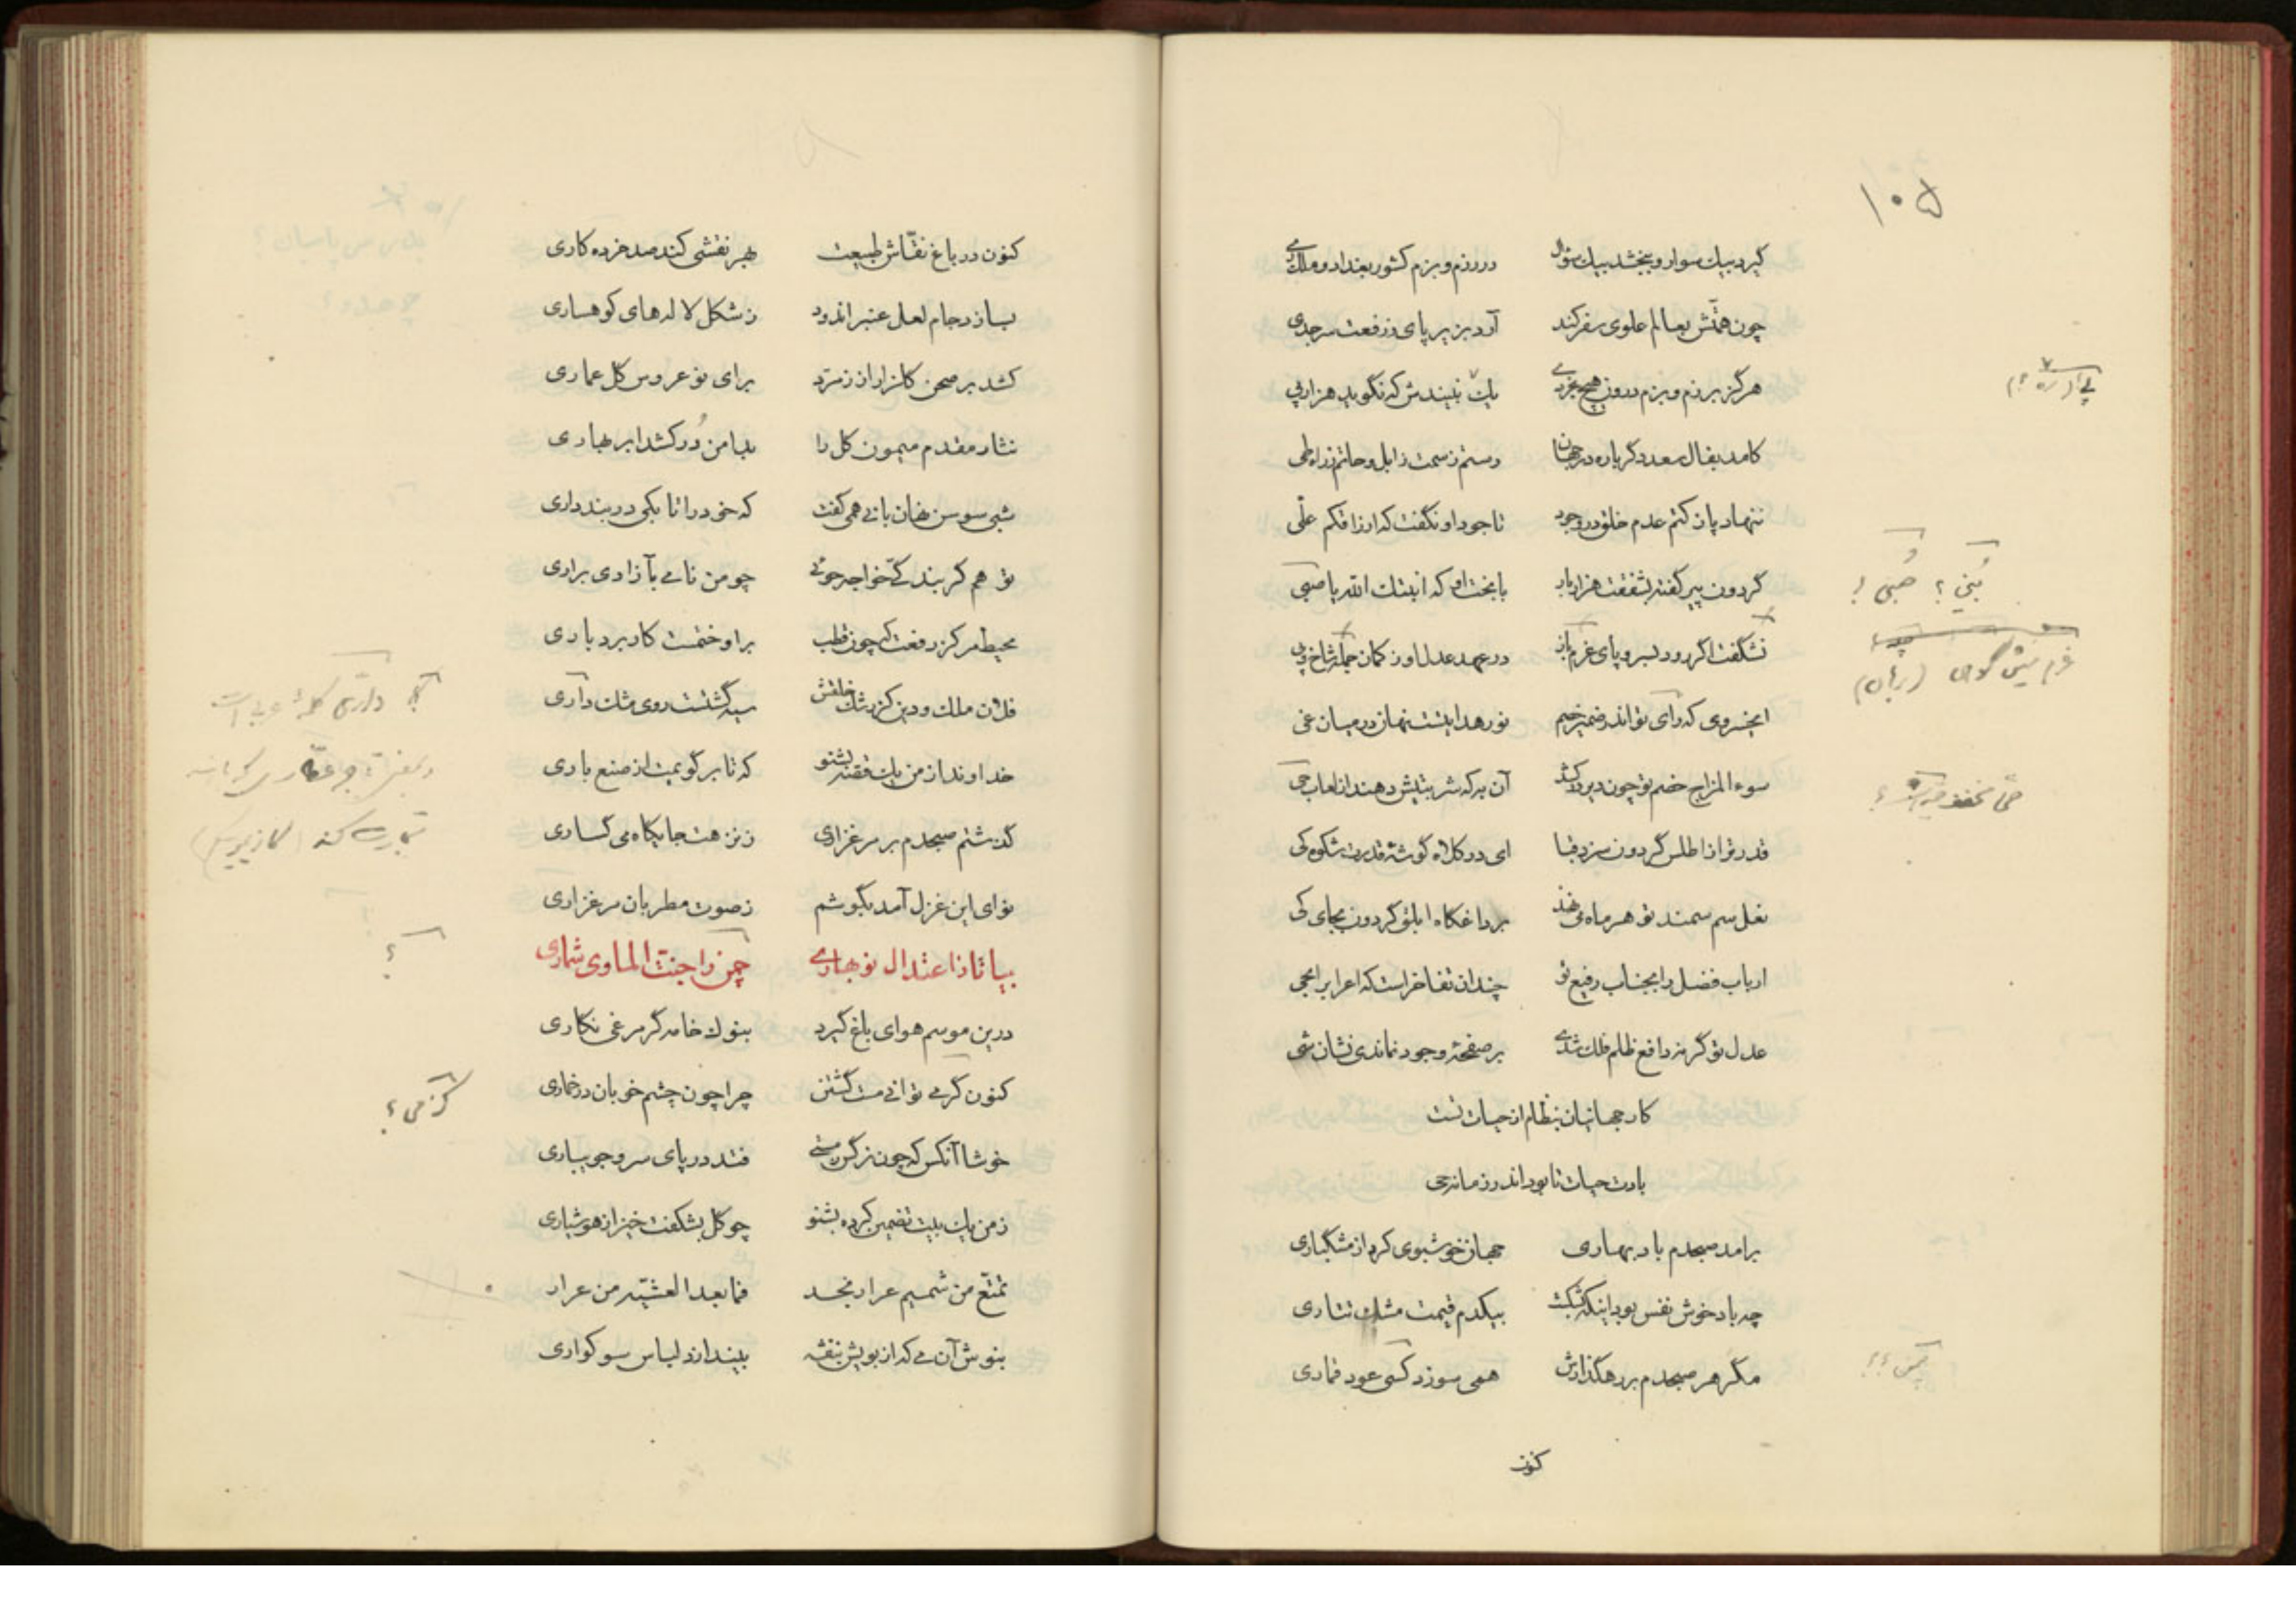 ۱۰۵
گیرد بیک سوار و ببخشد بیک سؤال در رزم و بزم کشور بغداد و ملک ری
چون همّتش بعالم علوی سفر کند آرد بزیر پای ز رفعت سر جدی
هرگز برزم و بزم درون هیچ پی
کامد بفال سعد دگر باره در جهان رستم ز سمت زابل و حاتم ز راه طی
ننهاد پا ز کتم عدم خلق در وجود تا جود او نگفت که ارزاقکم علّی
گردون پیر گفته بشفقت هزار بار با بخت او که انبتک الله یا صبی
نشگفت اگر رود بسر و پای غرم باز در عهد عدل او ز کمان جمله شاخ و پی
ایخسروی که رای تو اندر ضمیر خصم نور هدایتست نهان در میان غی
سوء المزاج خصم تو چون دیر درکشد آن به که شربتیش دهند از لعاب حی
قدر ترا ز اطلس گردون سزد قبا ای در کلاه گوشهٔ قدرت شکوه کی
نعل سم سمند تو هر ماه می‌نهد بر داغگاه ابلق گردون بجای کی
ارباب فضل را بجناب رفیع تو چندان تفاخر است که اعراب را بحی
عدل تو گر نه دافع ظلم فلک شدی بر صفحهٔ وجود نماندی نشان شی
کار جهانیان بنظام از حیات تست
بادت حیات تا بود اندر زمانه حی
برامد صبحدم باد بهاری جهان خوشبوی کرد از مشگباری
چه باد خوش نفس بود اینکه بشکست بیکدم قیمت مشک تتاری
مگر هر صبحدم بر رهگذارش همی سوزد کسی عود قماری
کنون
پی (ره ؟)
بُنَیّ ؟ صُبَی ؟
غرم میش کوهی (برهان)
حی مخفف حیه است ؟
کنون در باغ نقّاش طبیعت بهر نقشی کند صد خرده کاری
بسازد جام لعل عنبر اندود ز شکل لاله‌های کوهساری
کشد بر صحن گلزار از زمرّد برای نو عروس گل عماری
نثار مقدم میمون گل را بدامن دُر کشد ابر بهاری
شبی سوسن نهان با نی همی گفت که خود را تا بکی در بند داری
تو هم گر بندگیّ خواجه جوئی چو من نامی بآزادی براری
محیط مرکز رفعت که چون قطب براو ختمست کار بردباری
فلان ملک و دین کز رشک خلقش سیه گشتست روی مشک داری
خداوندا ز من یک قصّه بشنو که تا بر گویمت از صنع باری
گذشتم صبحدم بر مرغزاری ز نزهت جایگاه می گساری
نوای این غزل آمد بگوشم ز صوت مطربان مرغزاری
بیا تا از اعتدال نوبهاری چمن را جنت الماوی شماری
درین موسم هوای باغ گیرد بنوک خامه گر مرغی نگاری
کنون گر می توانی مست گشتن چرا چون چشم خوبان در خماری
خوشا آنکس که چون نرگس ز مستی فتد در پای سرو جویباری
ز من یک بیت تضمین کرده بشنو چو گل بشکفت خیز از هوشیاری
تمتّع من شمیم عرار نجد فما بعد العشیّه من عرار
بنوش آن می که از بویش بنفشه بیندازد لباس سوگواری
؟